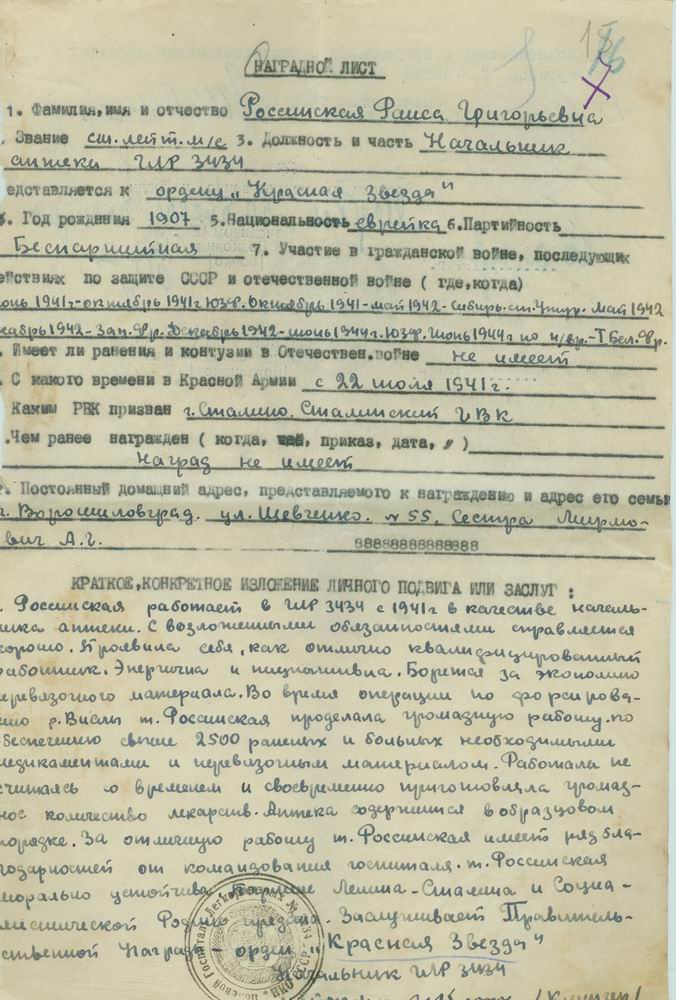 НАГРАДНОЙ ЛИСТ
1. Фамилия,имя и отчество Россинская Раиса Григорьевна
. Звание ст.лейт.м/с 3. Должность и часть Начальник
аптеки ГЛР 3434
едставляется к ордену „Красная Звезда"
. Год рождния 1907 5.Национальность еврейка 6.Партийность
Беспартийная 7. Участие в гражданской войне, последующих
ействиях по защите СССР и отечественной войне ( где,когда)
юнь 1941г-октябрь 1941г ЮЗФ. Октябрь 1941-май 1942-Сибирь.ст. Май 1942
кабрь 1942-Зап.Фр. Декабрь 1942-июнь 1944г. ЮЗФ. Июнь 1944г по н/вр.-I Бел.Фр.
. Имеет ли ранения и контузии в Отечествен.войне не имеет
. С какого времени в Красной Армии с 22 июля 1941г.
Каким РВК призван г.Сталино. Сталинский ГВК
.Чем ранее награжден ( когда, приказ, дата, )
Наград не имеет
. Постоянный домашний адрес, представляемого к награждению и адрес его семьи
г. Ворошиловград. ул. Шевченко. № 55. Сестра Мирмо-
вич А.Г. 8888888888888
КРАТКОЕ,КОНКРЕТНОЕ ИЗЛОЖЕНИЕ ЛИЧНОГО ПОДВИГА ИЛИ ЗАСЛУГ :
. Россинская работает в ГЛР 3434 с 1941г в качестве началь-
ника аптеки. С возложенными обязанностями справляется
хорошо. Проявила себя, как отлично квалифицированный
работник. Энергична и инициативна. Борется за экономию
перевязочного материала. Во время операции по форсирова-
нию р.Вислы т.Россинская проделала громадную работу.по
обеспечению свыше 2500 раненых и больных необходимыми
медикаментами и перевязочным материалом. Работала не
считаясь со временем и своевременно приготовляла громад-
ное количество лекарств. Аптека содержится в образцовом
порядке. За отличную работу т.Россинская имеет ряд бла-
годарностей от командования госпиталя. т.Россинская
морально устойчива. Партии Ленина-Сталина и Социа-
листической Родине предана. Заслуживает Правитель-
ственной Награды орден „Красная Звезда"
Начальник ГЛР 3434